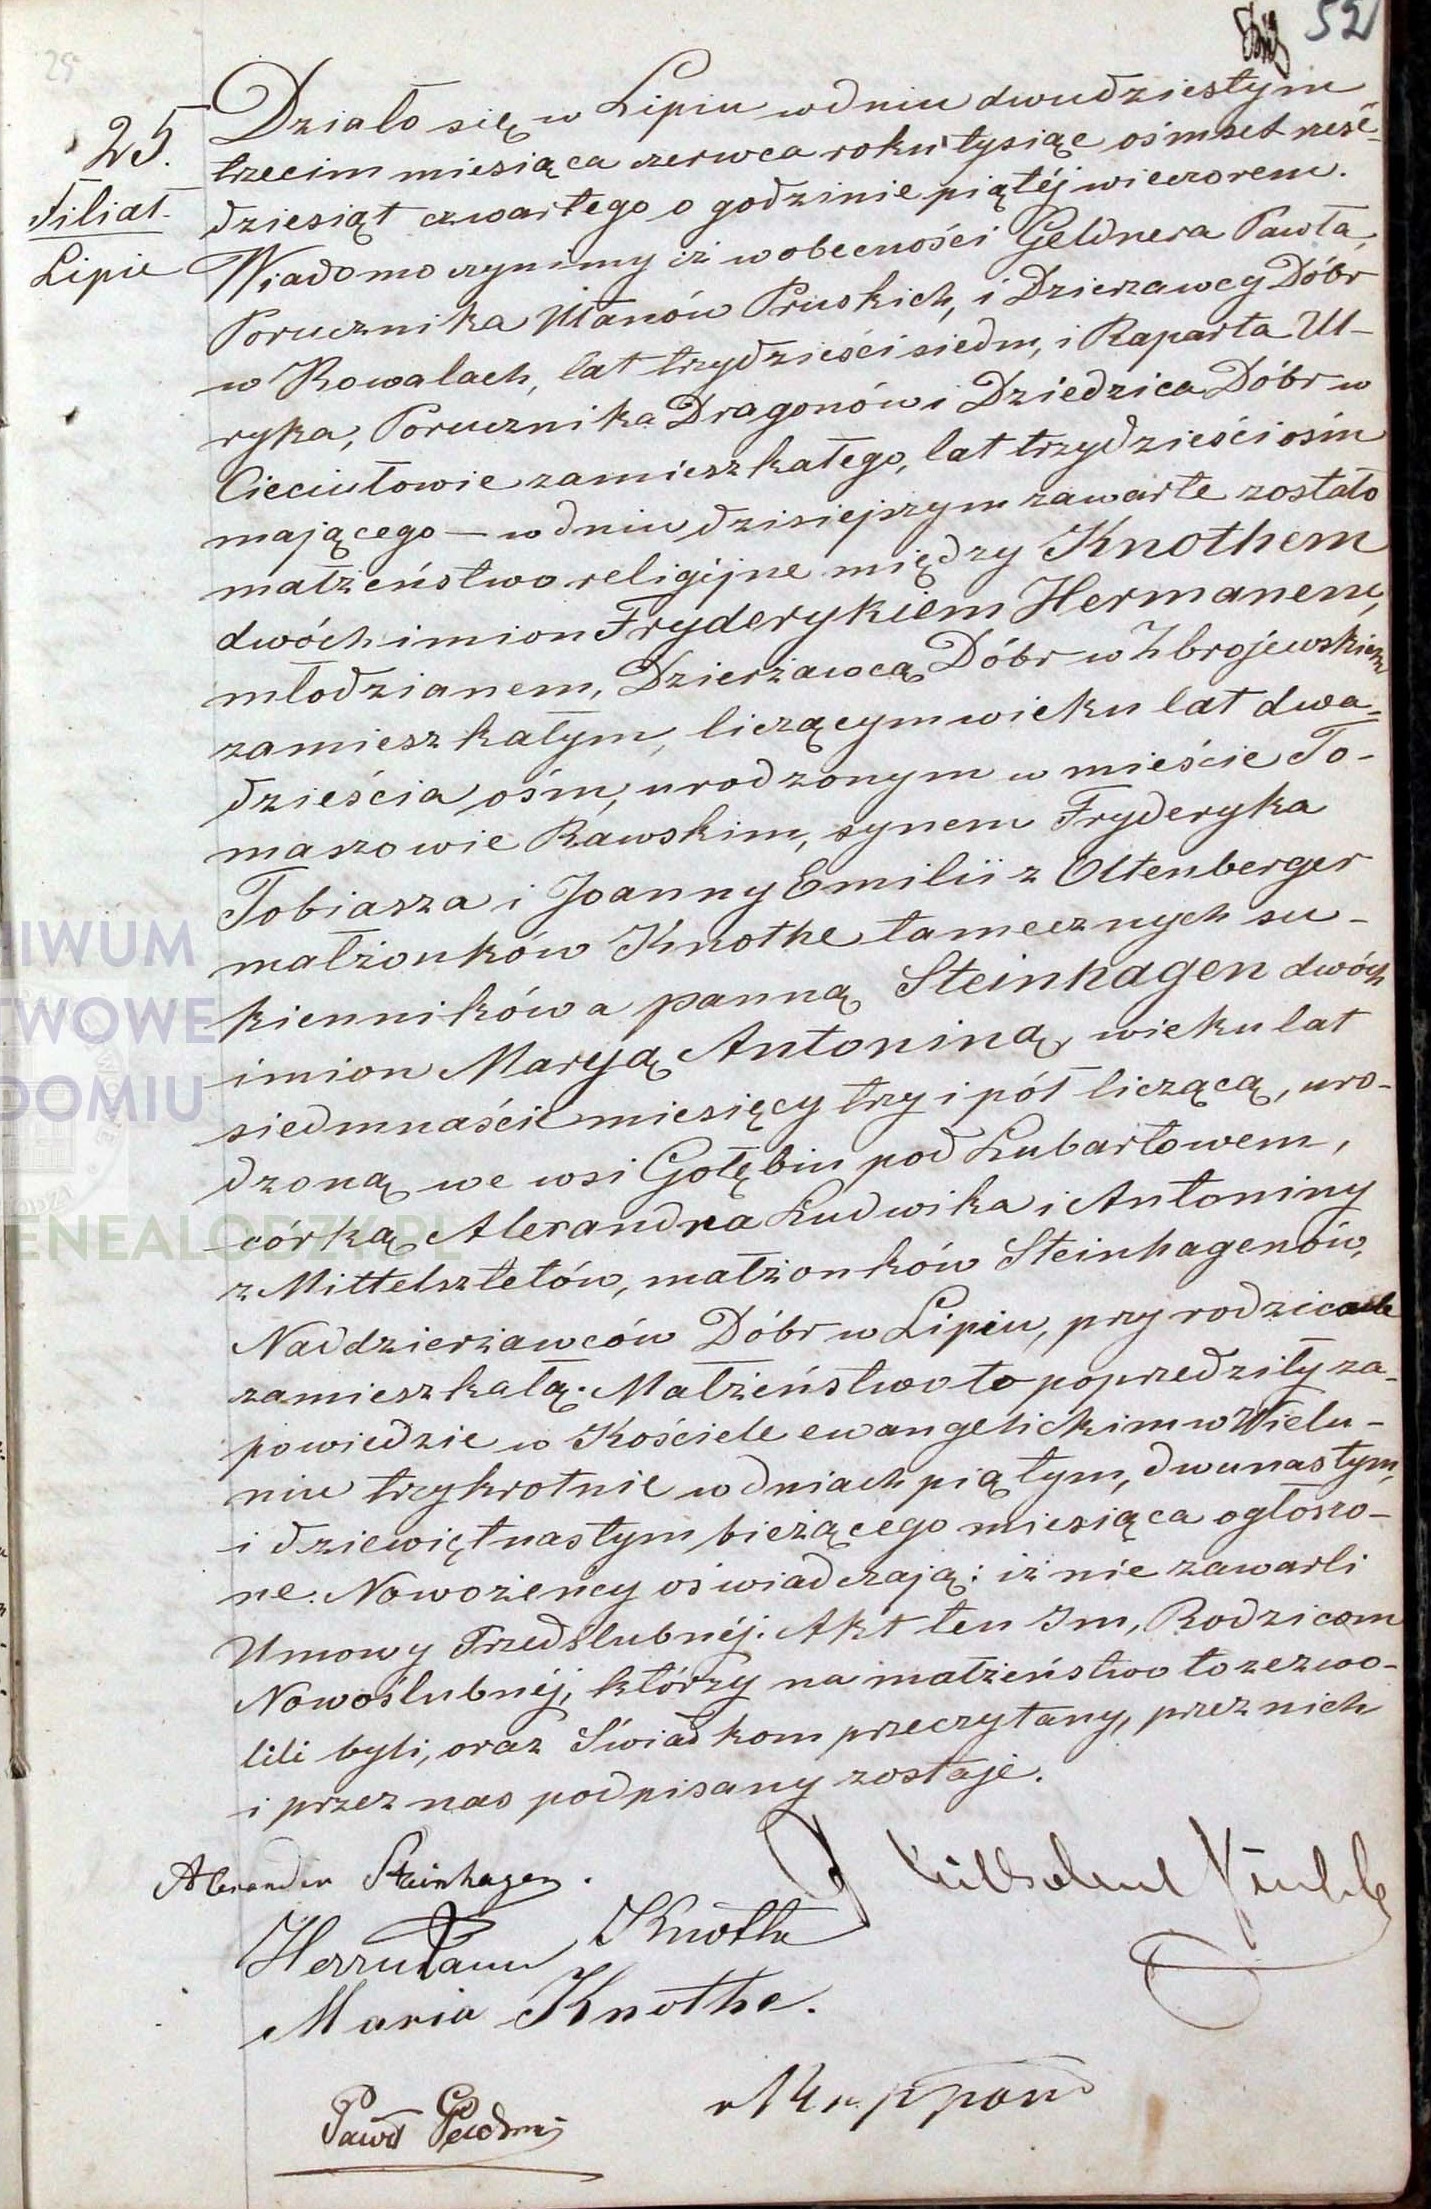 52
25
25.
Filiał.
Lipie
Działo się w Lipiu w dniu dwudziestym
trzecim miesiąca czerwca roku tysiąc ośmset sześć-
dziesiąt czwartego o godzinie piątéj wieczorem.
Wiadomo czynimy iż w obecności Geldnera Pawła,
Porucznika Ułanów Pruskich, i Dzierżawcy Dóbr
w Rowalach, lat trzydzieści siedm, i Raparta Ul-
ryka, Porucznika Dragonów i Dziedzica Dóbr w
Cieciułowie zamieszkałego, lat trzydzieści ośm
mającego — w dniu dzisiejszym zawarte zostało
małżeństwo religijne między Knothem
dwóch imion Fryderykiem Hermanem,
młodzianem, Dzierżawcą Dóbr w Zbrojewskiem
zamieszkałym, liczącym wieku lat dwa-
dzieścia ośm, urodzonym w mieście To-
maszowie Rawskim, synem Fryderyka
Tobiasza i Joanny Emilii z Oltenberger
małżonków Knothe tamecznych su-
kienników a panną Steinhagen dwóch
imion Maryą Antoniną, wieku lat
siedmnaście miesięcy trzy i pół liczącą, uro-
dzoną we wsi Gołębiu pod Lubartowem,
córką Alexandra Ludwika i Antoniny
z Mittelsztetów, małżonków Steinhagenów,
Naddzierżawców Dóbr w Lipiu, przy rodzicach
zamieszkałą. Małżeństwo to poprzedziły za-
powiedzie w Kościele ewangelickim w Wielu-
niu trzykrotnie w dniach piątym, dwunastym,
i dziewiętnastym bieżącego miesiąca ogłoszo-
ne. Nowożeńcy oświadczają: iż nie zawarli
Umowy Przedślubnéj. Akt ten Im, Rodzicom
Nowoślubnéj, którzy na małżeństwo to zezwo-
lili byli, oraz Świadkom przeczytany, przez nich
i przez nas podpisany zostaje.
Alexander Steinhagen.
Herrmann Knothe
Maria Knothe.
Paweł
IWUM
TWOWE
DOMIU
ENEALODZY.PL